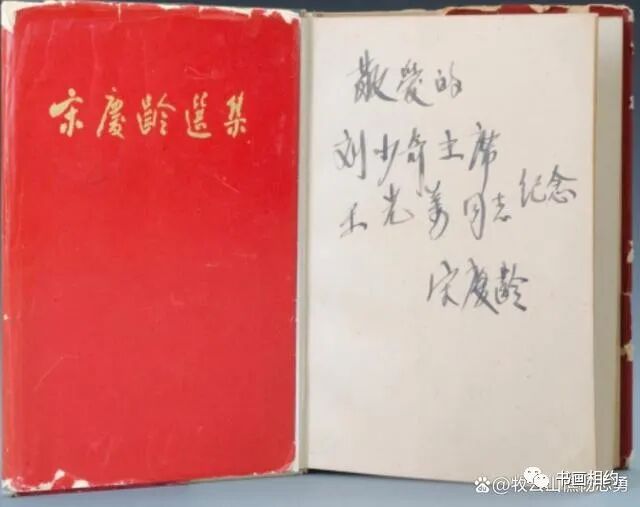 宋慶齡選集
敬愛的
刘少奇主席
王光美同志纪念
宋慶齡
书画相约